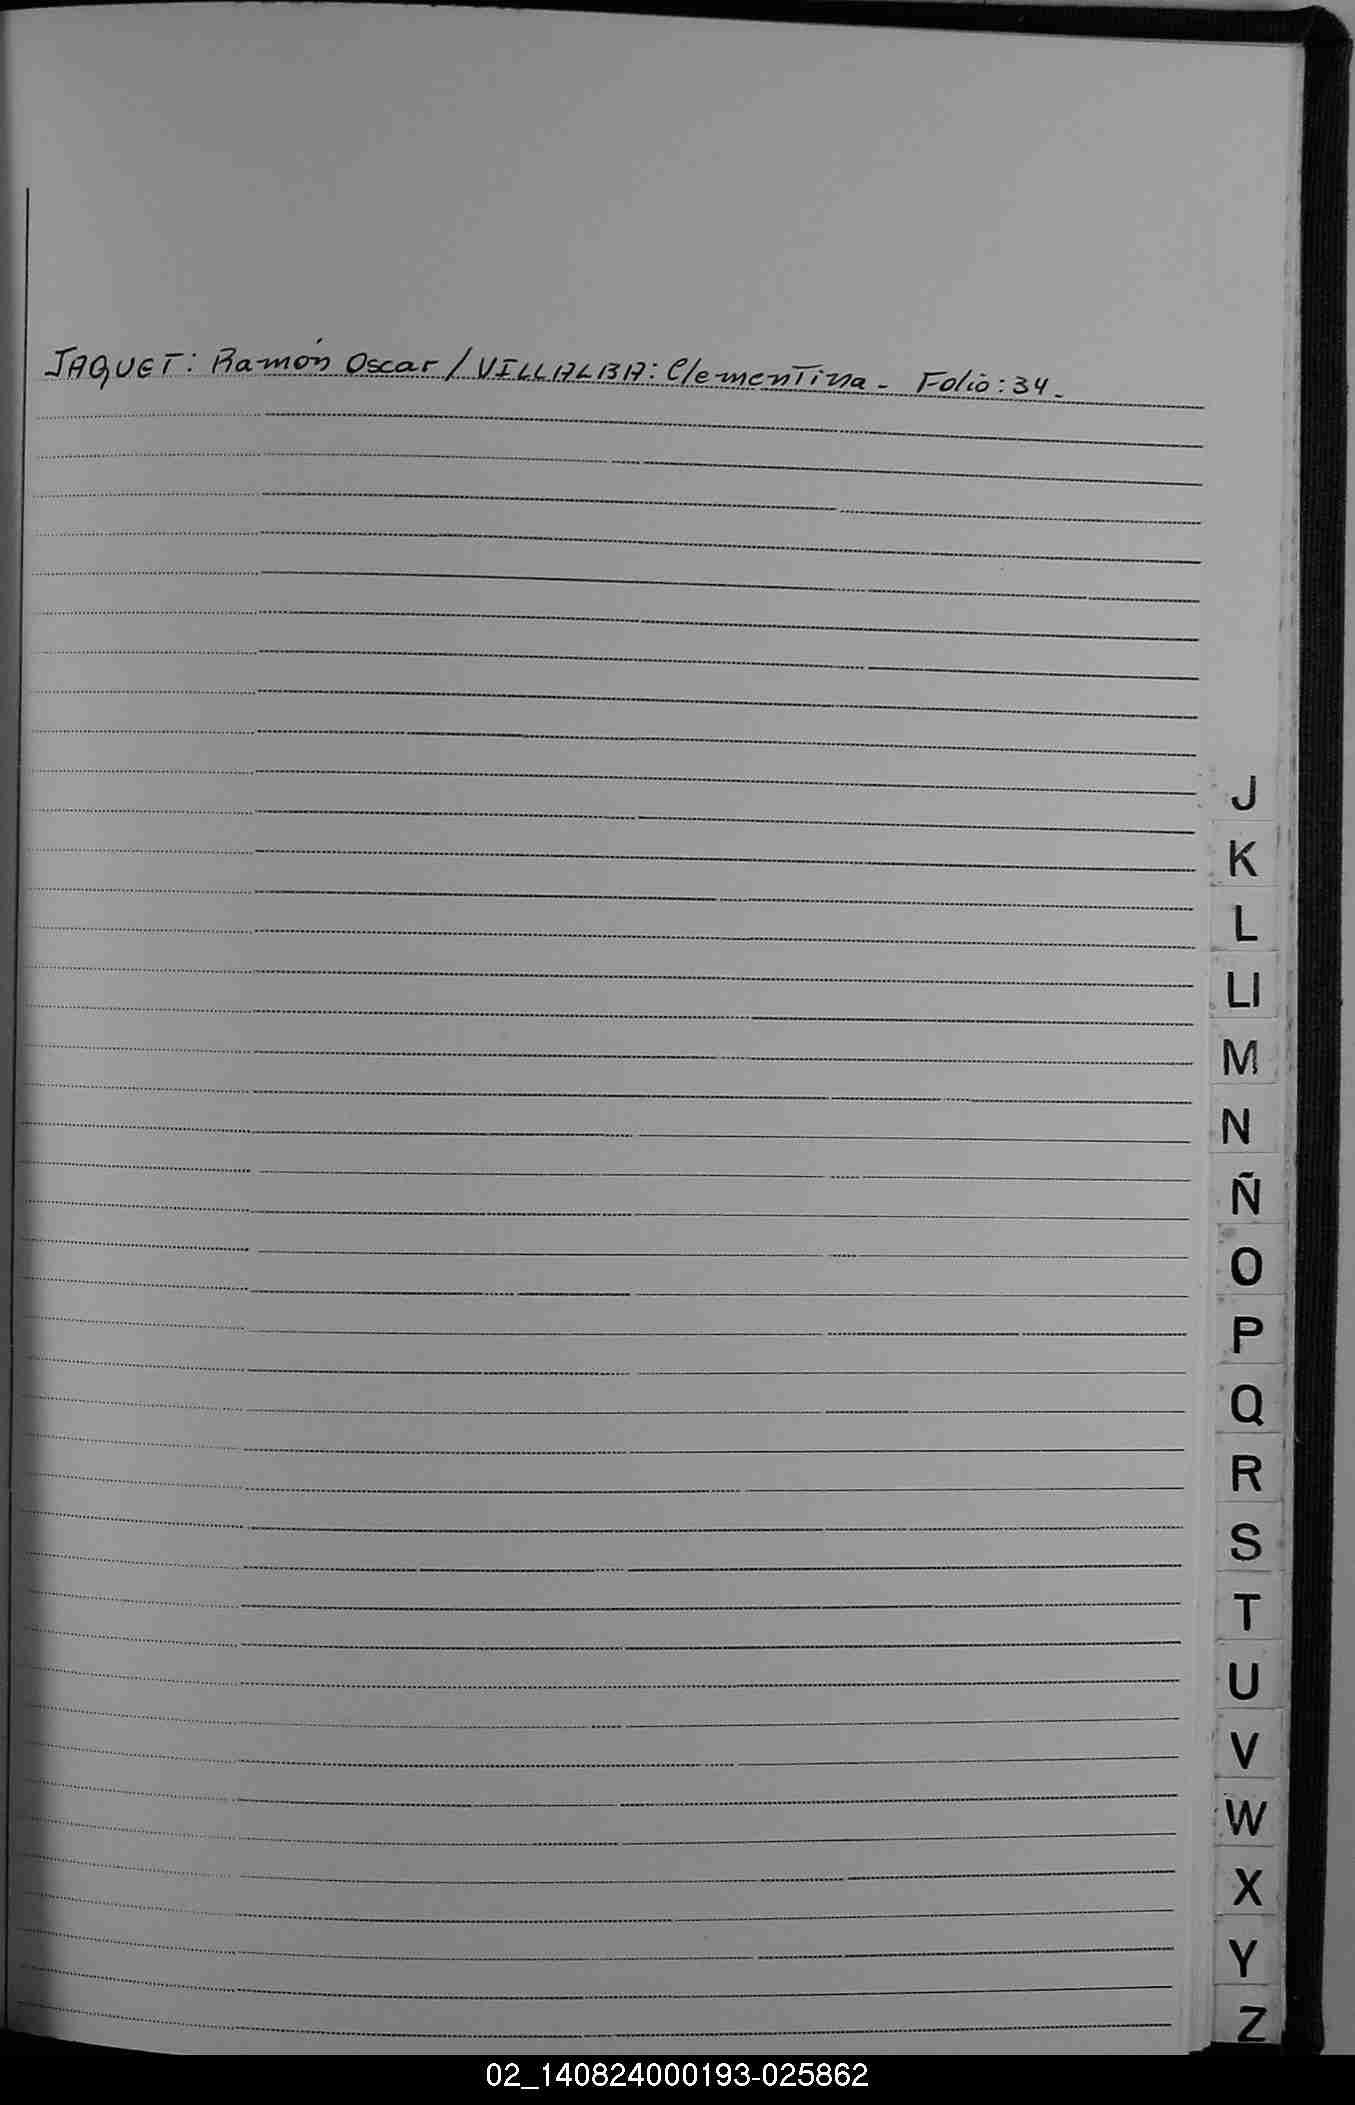 JAQUET: Ramón Oscar / VILLALBA: Clementina - Folio: 34 -
J
K
L
Ll
M
N
Ñ
O
P
Q
R
S
T
U
V
W
X
Y
Z
02_140824000193-025862